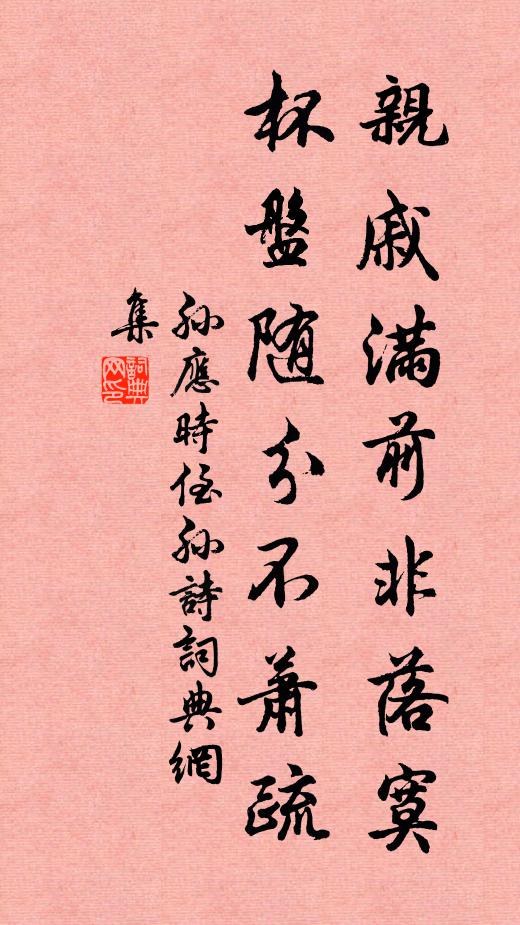 親戚滿前非落寞
杯盤随分不蕭疏
孙應時侄孙詩詞典網
集
詞典網印